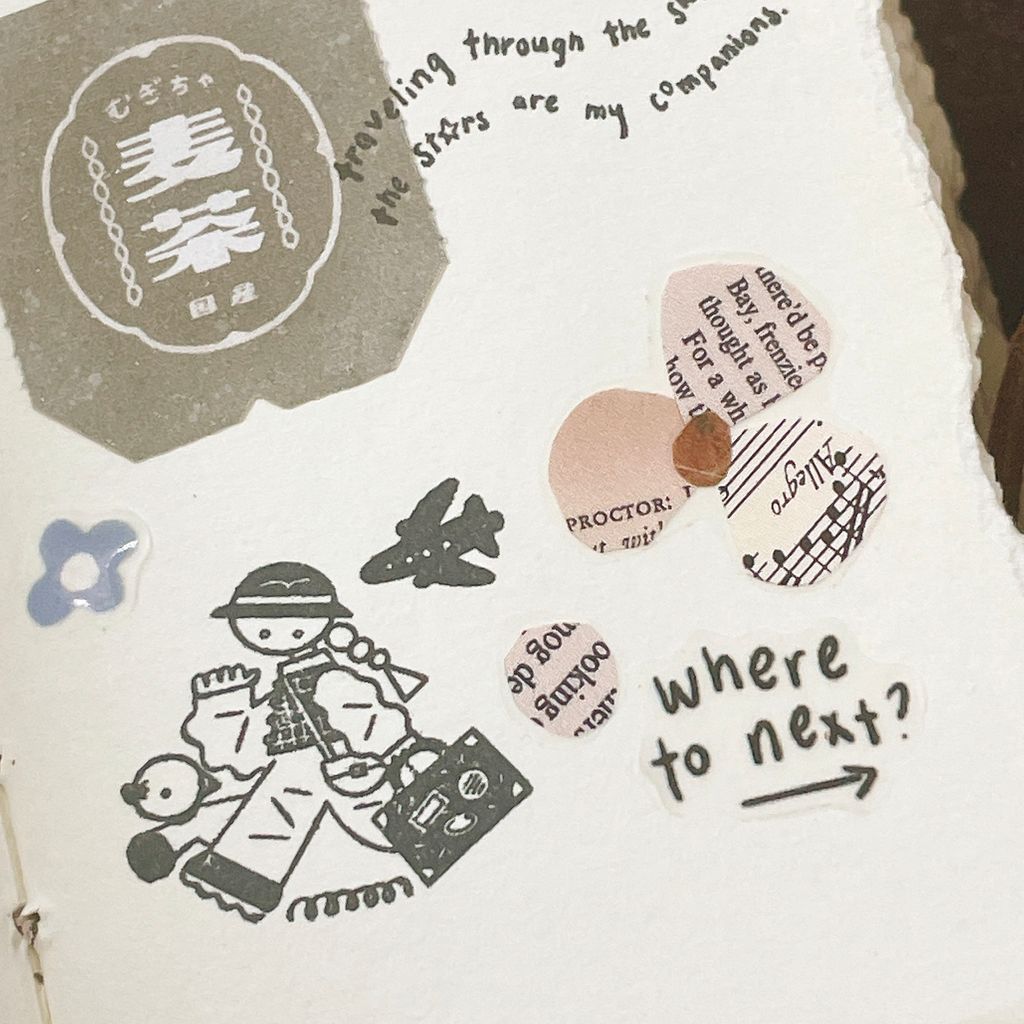 むぎちゃ
麦
茶
国産
traveling through the
the stars are my companions.
here'd be p
Bay, frenzie
thought as
For a wh
how t
PROCTOR:
Allegro
nog de
ooking
where
to next?